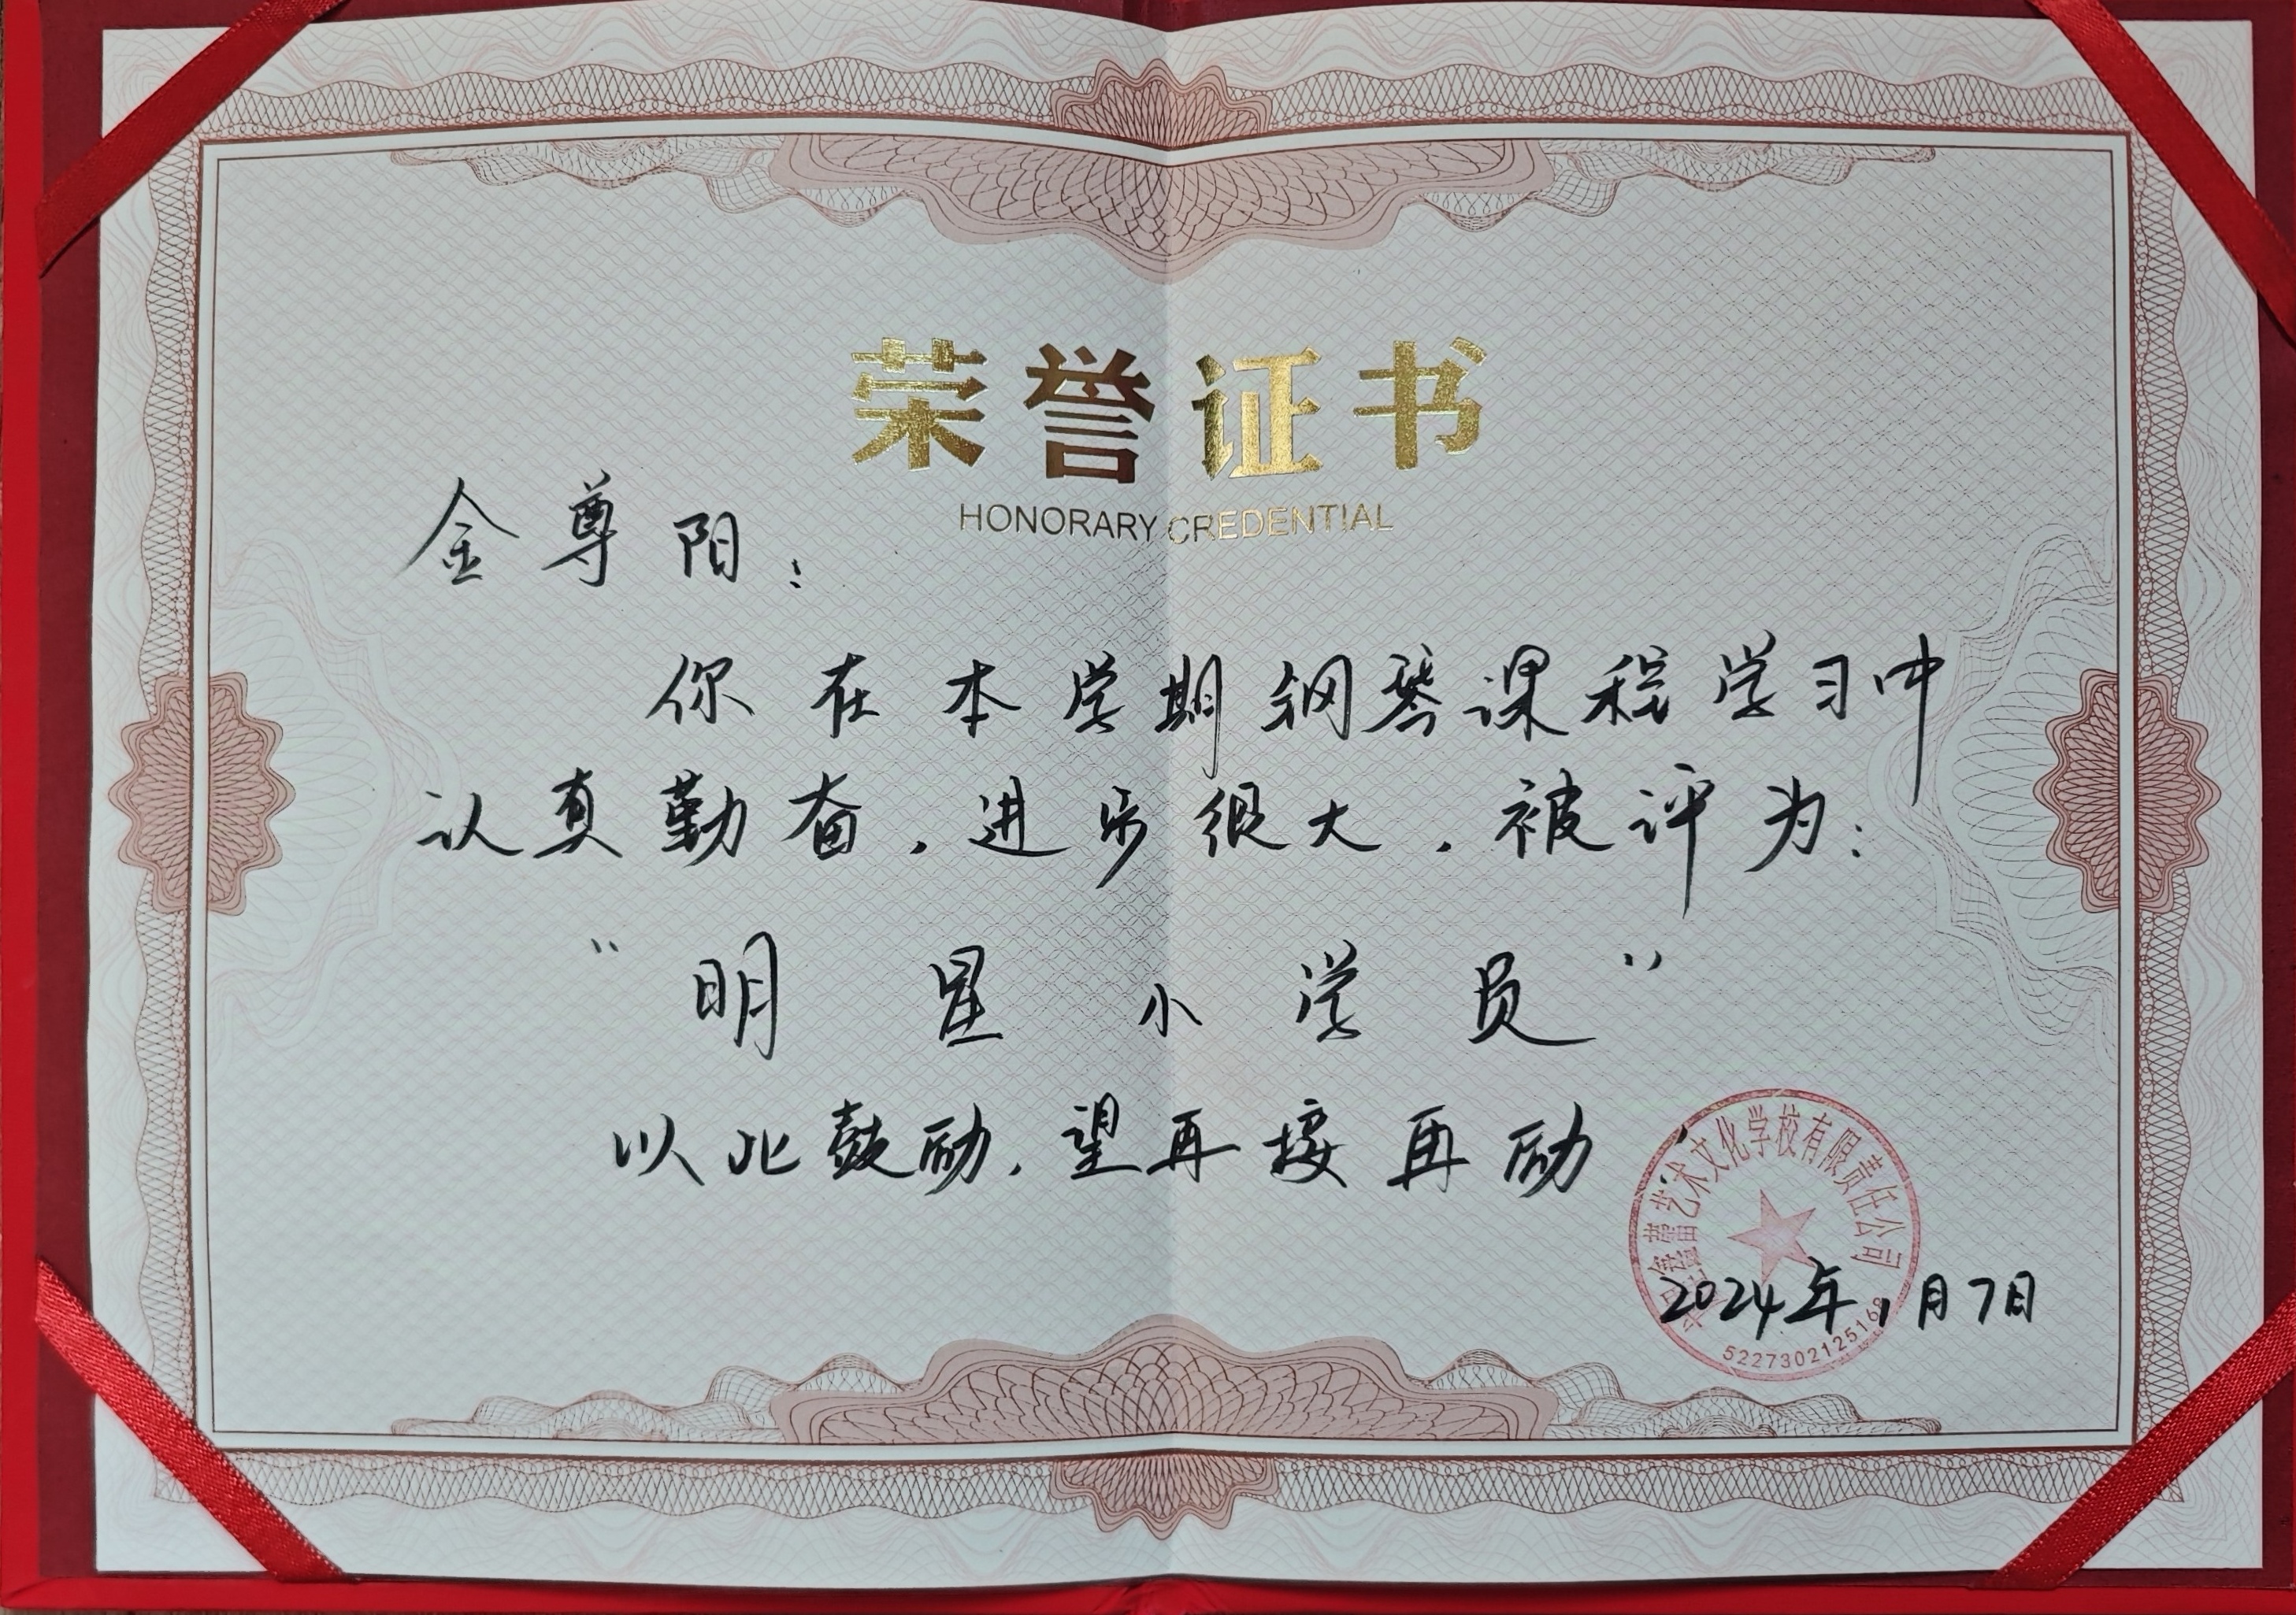 荣誉证书
HONORARY CREDENTIAL
金尊阳：
你在本学期钢琴课程学习中
认真勤奋，进步很大，被评为：
“明星小学员”
以此鼓励，望再接再励
鑫蕾艺术文化学校有限责任公司
2024年1月7日
5227302125168